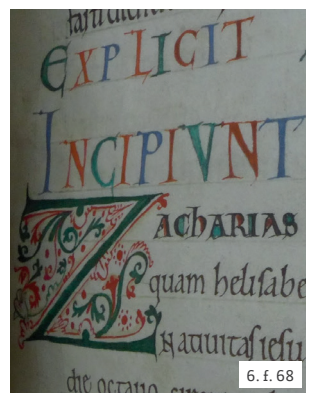 EXPLICIT
INCIPIVNT
ZAChARIAS
quam helisabe
In natiuitas iesu
die octauo
6. f. 68